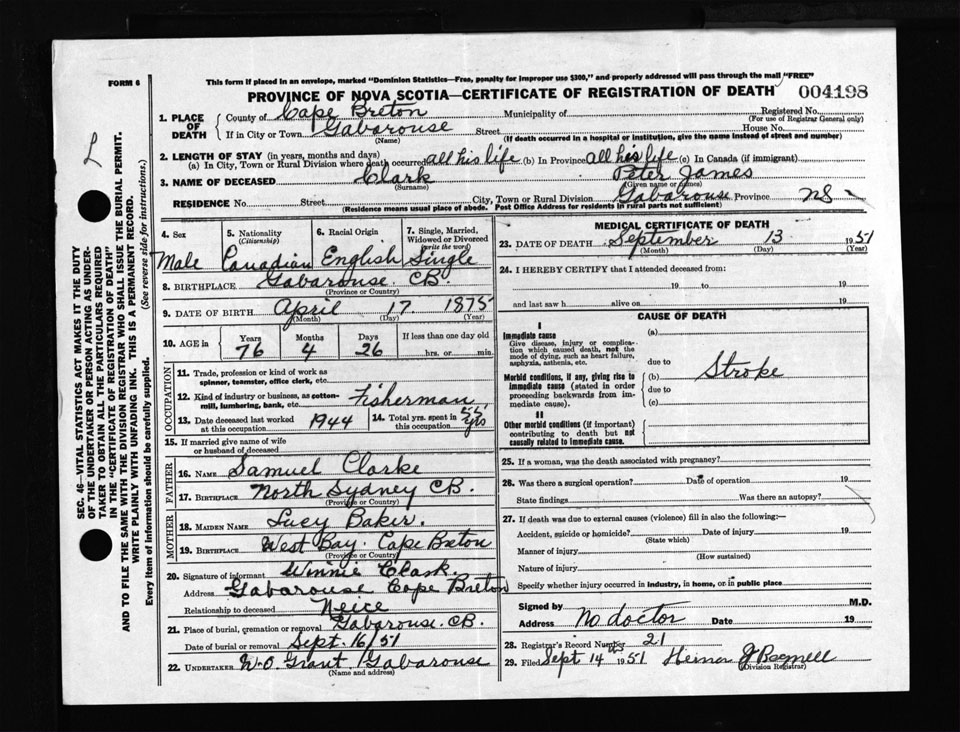 This form if placed in an envelope, marked "Dominion Statistics—Free, penalty for improper use $300," and properly addressed will pass through the mail "FREE"
FORM 6
PROVINCE OF NOVA SCOTIA—CERTIFICATE OF REGISTRATION OF DEATH 004198
1. PLACE OF DEATH { County of Cape Breton Municipality of Registered No. (For use of Registrar General only)
If in City or Town Gabarouse (Name) Street House No. (If death occurred in a hospital or institution, give the name instead of street and number)
2. LENGTH OF STAY (in years, months and days)
(a) In City, Town or Rural Division where death occurred all his life (b) In Province all his life (c) In Canada (if immigrant)
3. NAME OF DECEASED Clark (Surname) Peter James (Given name or names)
RESIDENCE No. Street City, Town or Rural Division Gabarouse Province NS
(Residence means usual place of abode. Post Office Address for residents in rural parts not sufficient)
4. Sex Male
5. Nationality (Citizenship) Canadian
6. Racial Origin English
7. Single, Married, Widowed or Divorced (write the word) Single
8. BIRTHPLACE Gabarouse. CB. (Province or Country)
9. DATE OF BIRTH April (Month) 17. (Day) 1875 (Year)
10. AGE in Years 76 Months 4 Days 26 If less than one day old hrs. or min.
OCCUPATION
11. Trade, profession or kind of work as spinner, teamster, office clerk, etc.
12. Kind of industry or business, as cotton-mill, lumbering, bank, etc. Fisherman
13. Date deceased last worked at this occupation 1944
14. Total yrs. spent in this occupation 55 yrs
15. If married give name of wife or husband of deceased
FATHER
16. NAME Samuel Clarke
17. BIRTHPLACE North Sydney CB. (Province or Country)
MOTHER
18. MAIDEN NAME Lucy Baker.
19. BIRTHPLACE West Bay. Cape Breton (Province or Country)
20. Signature of informant Winnie Clark.
Address Gabarouse Cape Breton
Relationship to deceased Neice
21. Place of burial, cremation or removal Gabarouse. CB.
Date of burial or removal Sept. 16/51
22. UNDERTAKER W.O. Grant Gabarouse
(Name and address)
MEDICAL CERTIFICATE OF DEATH
23. DATE OF DEATH September (Month) 13 (Day) 1951 (Year)
24. I HEREBY CERTIFY that I attended deceased from:
19 to 19
and last saw h alive on 19
CAUSE OF DEATH
I
Immediate cause (a)
Give disease, injury or complication which caused death, not the mode of dying, such as heart failure, asphyxia, asthenia, etc.
due to
Morbid conditions, if any, giving rise to immediate cause (stated in order proceeding backwards from immediate cause).
(b) Stroke
due to
(c)
II
Other morbid conditions (if important) contributing to death but not causally related to immediate cause.
25. If a woman, was the death associated with pregnancy?
26. Was there a surgical operation? Date of operation 19
State findings Was there an autopsy?
27. If death was due to external causes (violence) fill in also the following:—
Accident, suicide or homicide? (State which) Date of injury 19
Manner of injury (How sustained)
Nature of injury
Specify whether injury occurred in industry, in home, or in public place
Signed by M.D.
Address No doctor Date 19
28. Registrar's Record Number 21
29. Filed Sept 14th 1951
(Division Registrar)
SEC. 46—VITAL STATISTICS ACT MAKES IT THE DUTY
OF THE UNDERTAKER OR PERSON ACTING AS UNDER-
TAKER TO OBTAIN ALL THE PARTICULARS REQUIRED
IN THE "CERTIFICATE OF REGISTRATION OF DEATH"
AND TO FILE THE SAME WITH THE DIVISION REGISTRAR WHO SHALL ISSUE THE BURIAL PERMIT.
WRITE PLAINLY WITH UNFADING INK. THIS IS A PERMANENT RECORD.
Every item of Information should be carefully supplied. (See reverse side for instructions.)